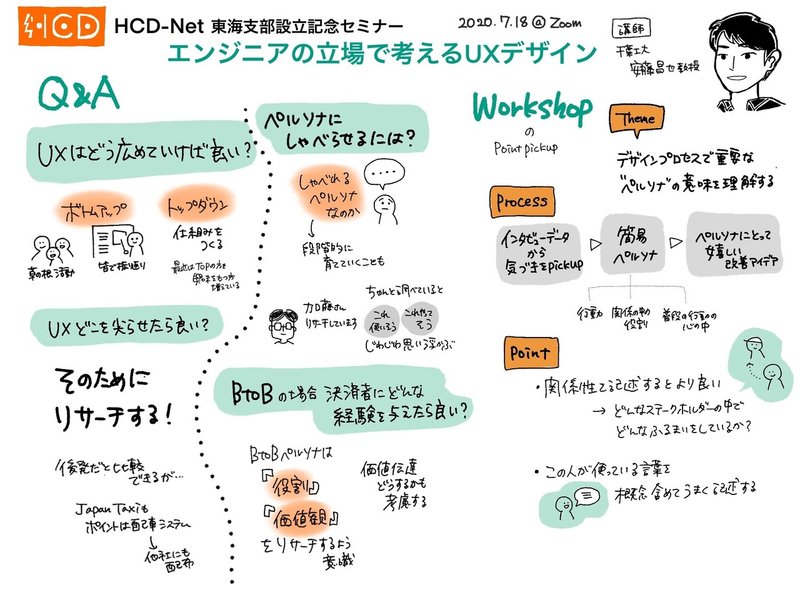 HCD
HCD-Net 東海支部設立記念セミナー
2020.7.18 @ Zoom
エンジニアの立場で考えるUXデザイン
講師
千葉工大
安藤昌也教授
Q&A
UXはどう広めていけば良い?
ボトムアップ
トップダウン
仕組みを
つくる
草の根活動
皆で振り返り
最近はTopの方も
興味をもつ方
増えている
UX どこを尖らせたら良い?
そのために
リサーチする!
後発だと比較
できるが…
Japan Taxiも
ポイントは配車システム
他社にも
配布
ペルソナに
しゃべらせるには?
しゃべれる
ペルソナ
なのか
段階的に
育てていくことも
加藤さん
リサーチしています
ちゃんと調べていると
これ
使いそう
これやって
そう
じわじわ思い浮かぶ
BtoBの場合 決済者にどんな
経験を与えたら良い?
BtoBペルソナは
『役割』
『価値観』
をリサーチするよう
意識
価値伝達
どうするかも
考慮する
Workshop
の
Point pickup
Theme
デザインプロセスで重要な
"ペルソナ"の意味を理解する
Process
インタビューデータ
から
気づきをpickup
簡易
ペルソナ
ペルソナにとって
嬉しい
改善アイデア
行動
関係の中の
役割
普段の行動の
心の中
Point
・関係性で記述するとより良い
→ どんなステークホルダーの中で
どんなふるまいをしているか?
・この人が使っている言葉を
概念含めてうまく記述する